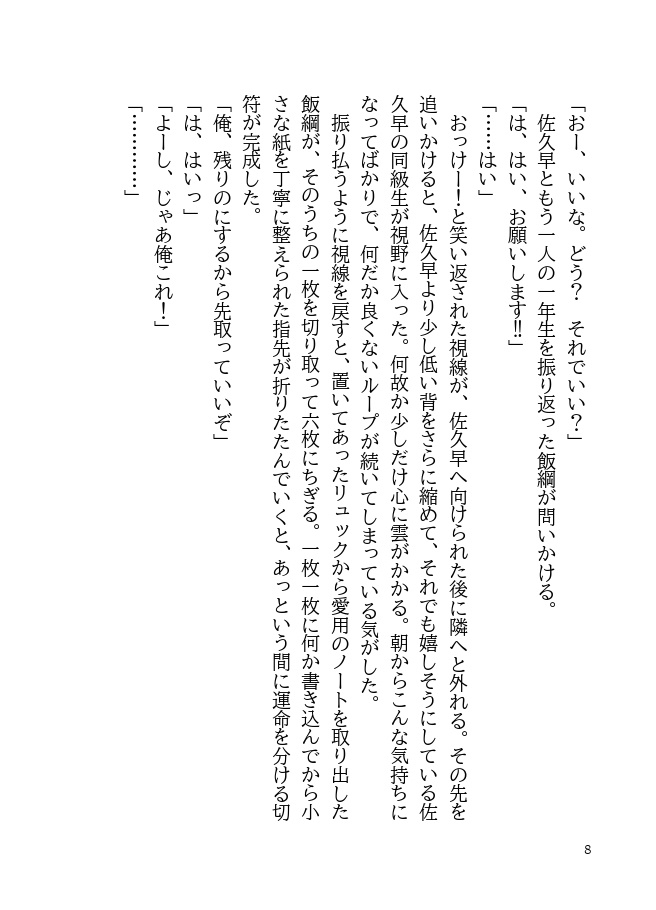 「おー、いいな。どう？　それでいい？」
　佐久早ともう一人の一年生を振り返った飯綱が問いかける。
「は、はい、お願いします‼」
「……はい」
　おっけー！と笑い返された視線が、佐久早へ向けられた後に隣へと外れる。その先を
追いかけると、佐久早より少し低い背をさらに縮めて、それでも嬉しそうにしている佐
久早の同級生が視野に入った。何故か少しだけ心に雲がかかる。朝からこんな気持ちに
なってばかりで、何だか良くないループが続いてしまっている気がした。
　振り払うように視線を戻すと、置いてあったリュックから愛用のノートを取り出した
飯綱が、そのうちの一枚を切り取って六枚にちぎる。一枚一枚に何か書き込んでから小
さな紙を丁寧に整えられた指先が折りたたんでいくと、あっという間に運命を分ける切
符が完成した。
「俺、残りのにするから先取っていいぞ」
「は、はいっ」
「よーし、じゃあ俺これ！」
「…………」
8